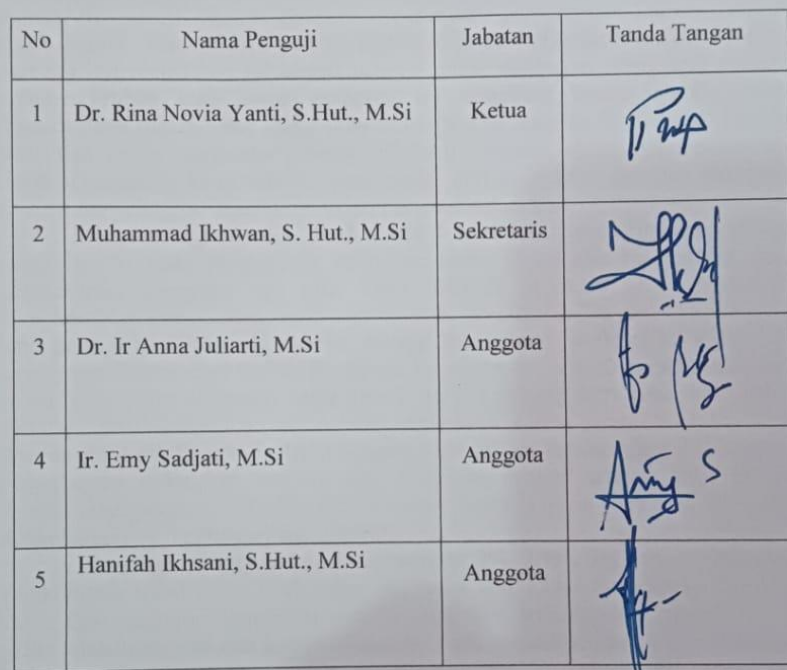 No Nama Penguji Jabatan Tanda Tangan
1 Dr. Rina Novia Yanti, S.Hut., M.Si Ketua
2 Muhammad Ikhwan, S. Hut., M.Si Sekretaris
3 Dr. Ir Anna Juliarti, M.Si Anggota
4 Ir. Emy Sadjati, M.Si Anggota
5 Hanifah Ikhsani, S.Hut., M.Si Anggota